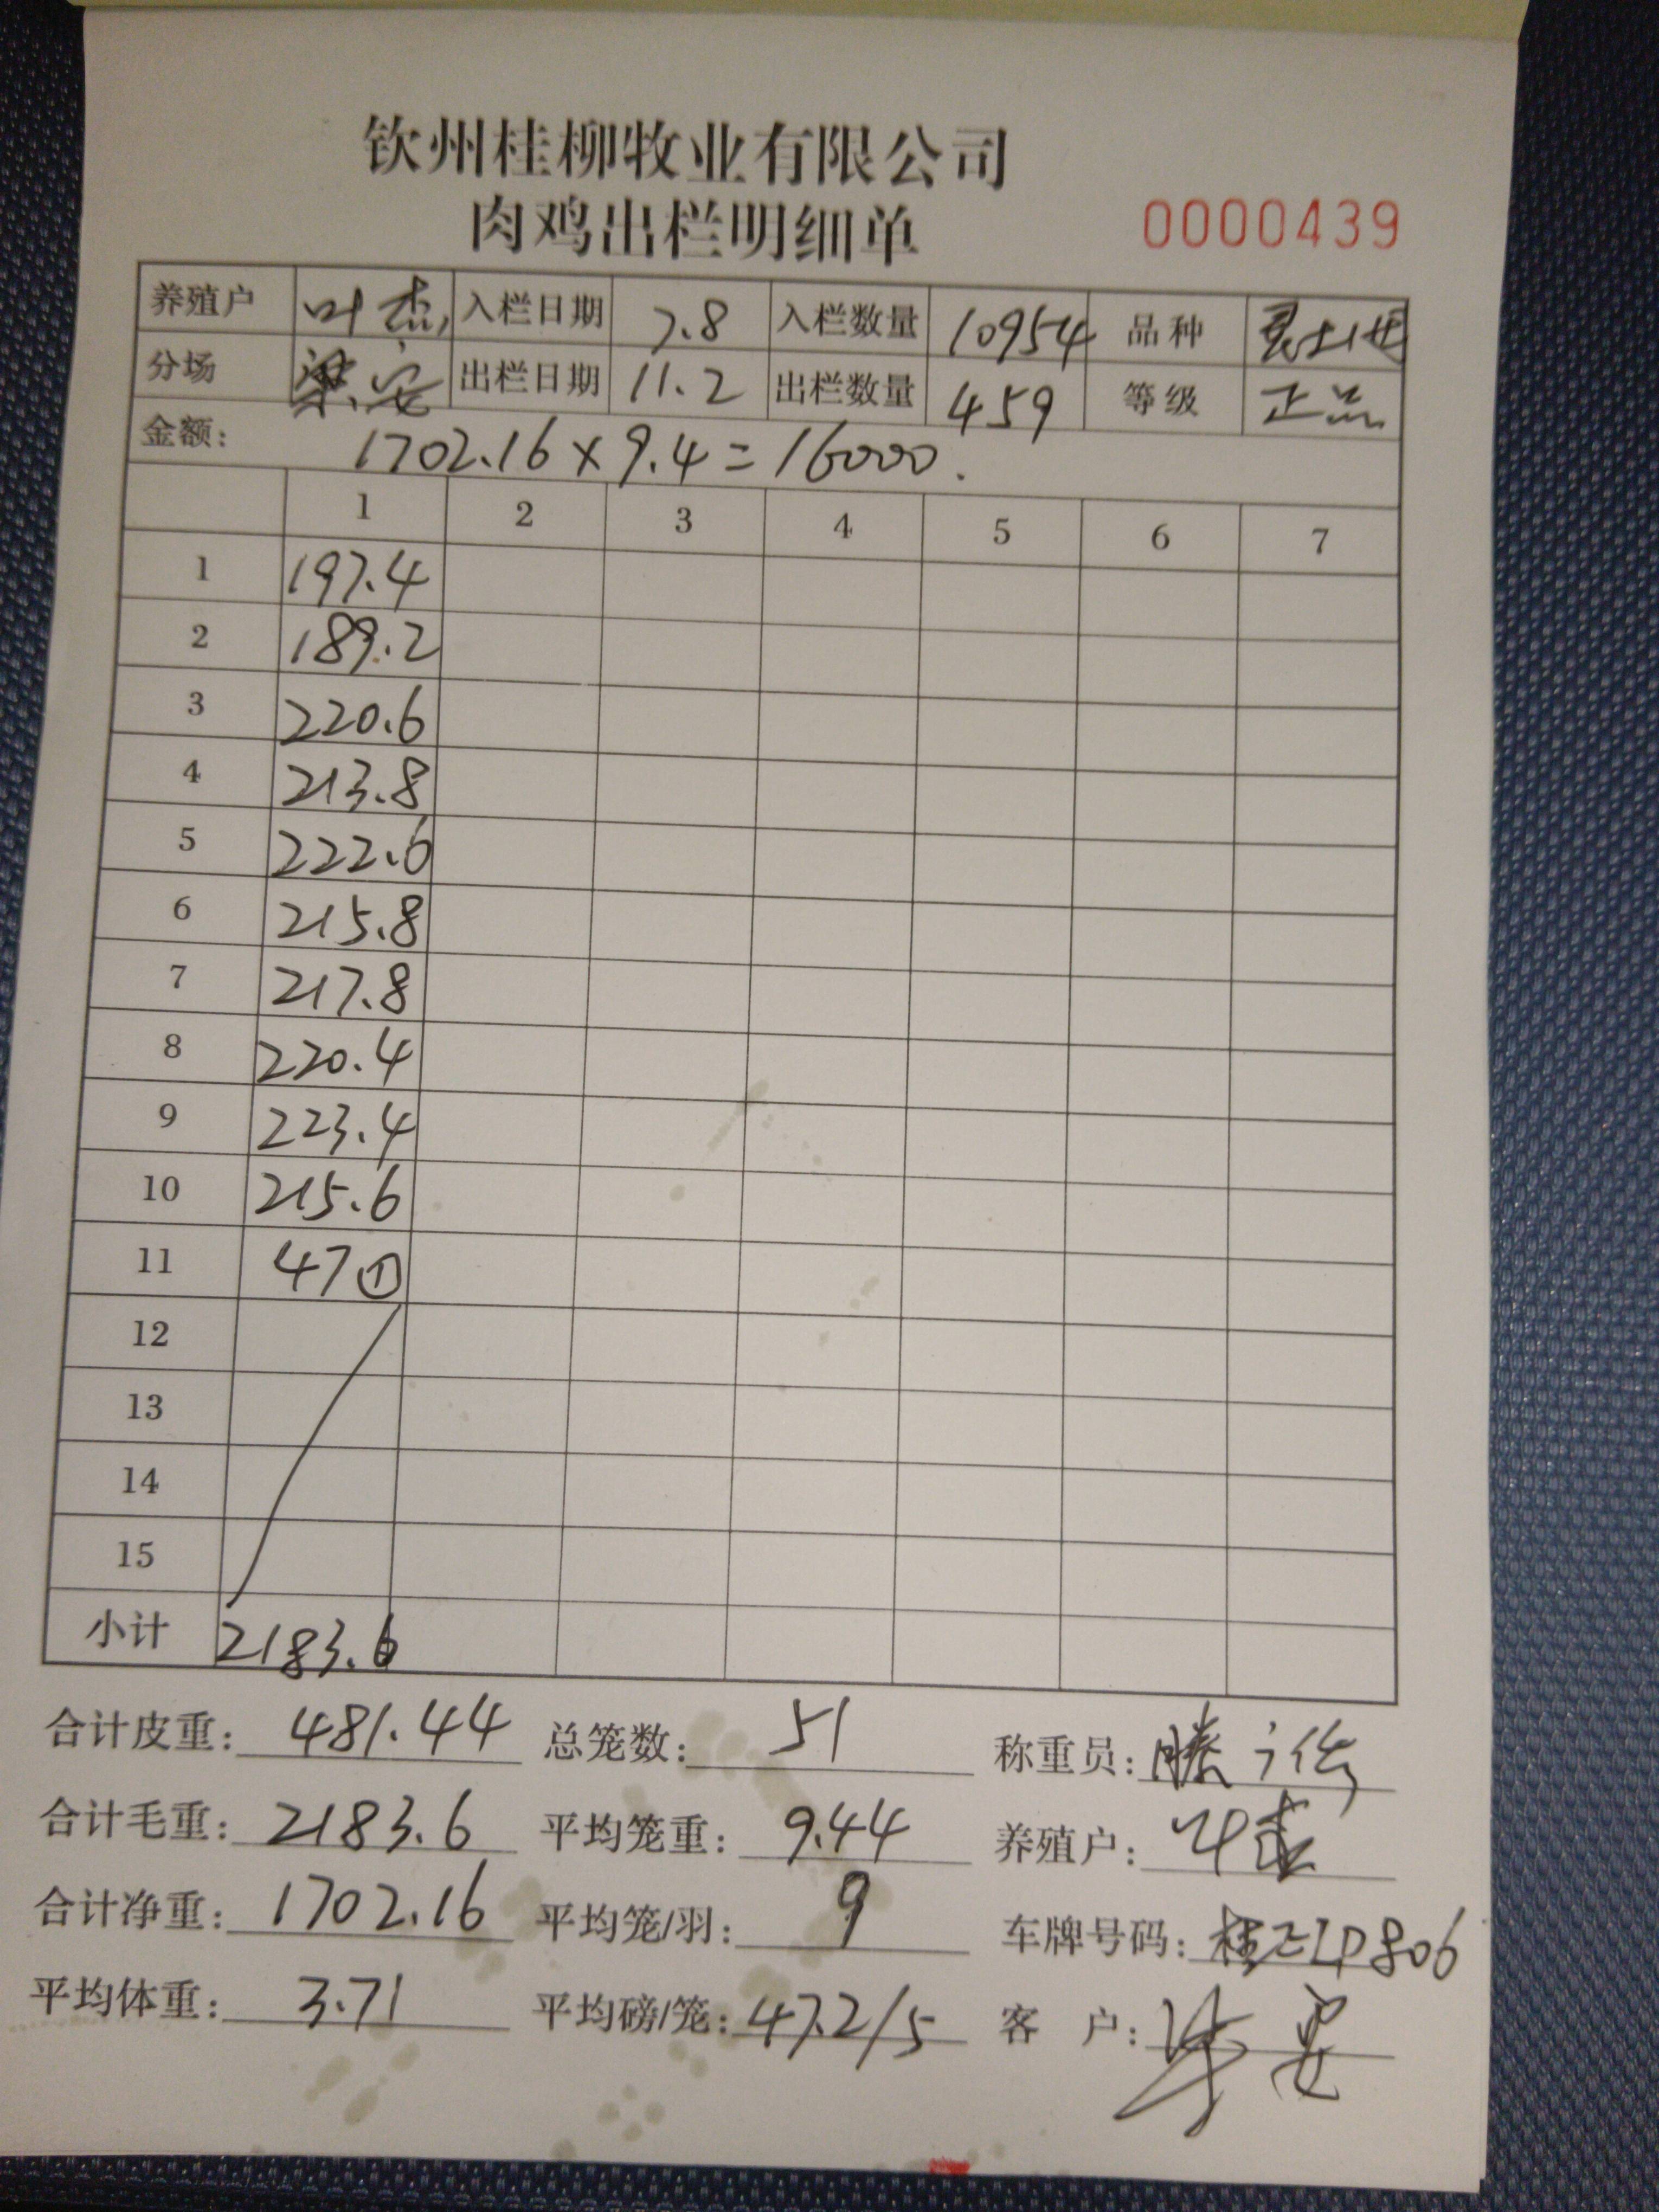 钦州桂柳牧业有限公司
肉鸡出栏明细单 0000439
养殖户 叶杰 入栏日期 7.8 入栏数量 10954 品种
分场 出栏日期 11.2 出栏数量 459 等级 正品
金额: 1702.16×9.4=16000.
1 2 3 4 5 6 7
1 197.4
2 189.2
3 220.6
4 213.8
5 222.6
6 215.8
7 217.8
8 220.4
9 223.4
10 215.6
11 47①
12
13
14
15
小计 2183.6
合计皮重: 481.44 总笼数: 51 称重员:
合计毛重: 2183.6 平均笼重: 9.44 养殖户:
合计净重: 1702.16 平均笼/羽: 9 车牌号码:
平均体重: 3.71 平均磅/笼: 47.2/5 客 户: